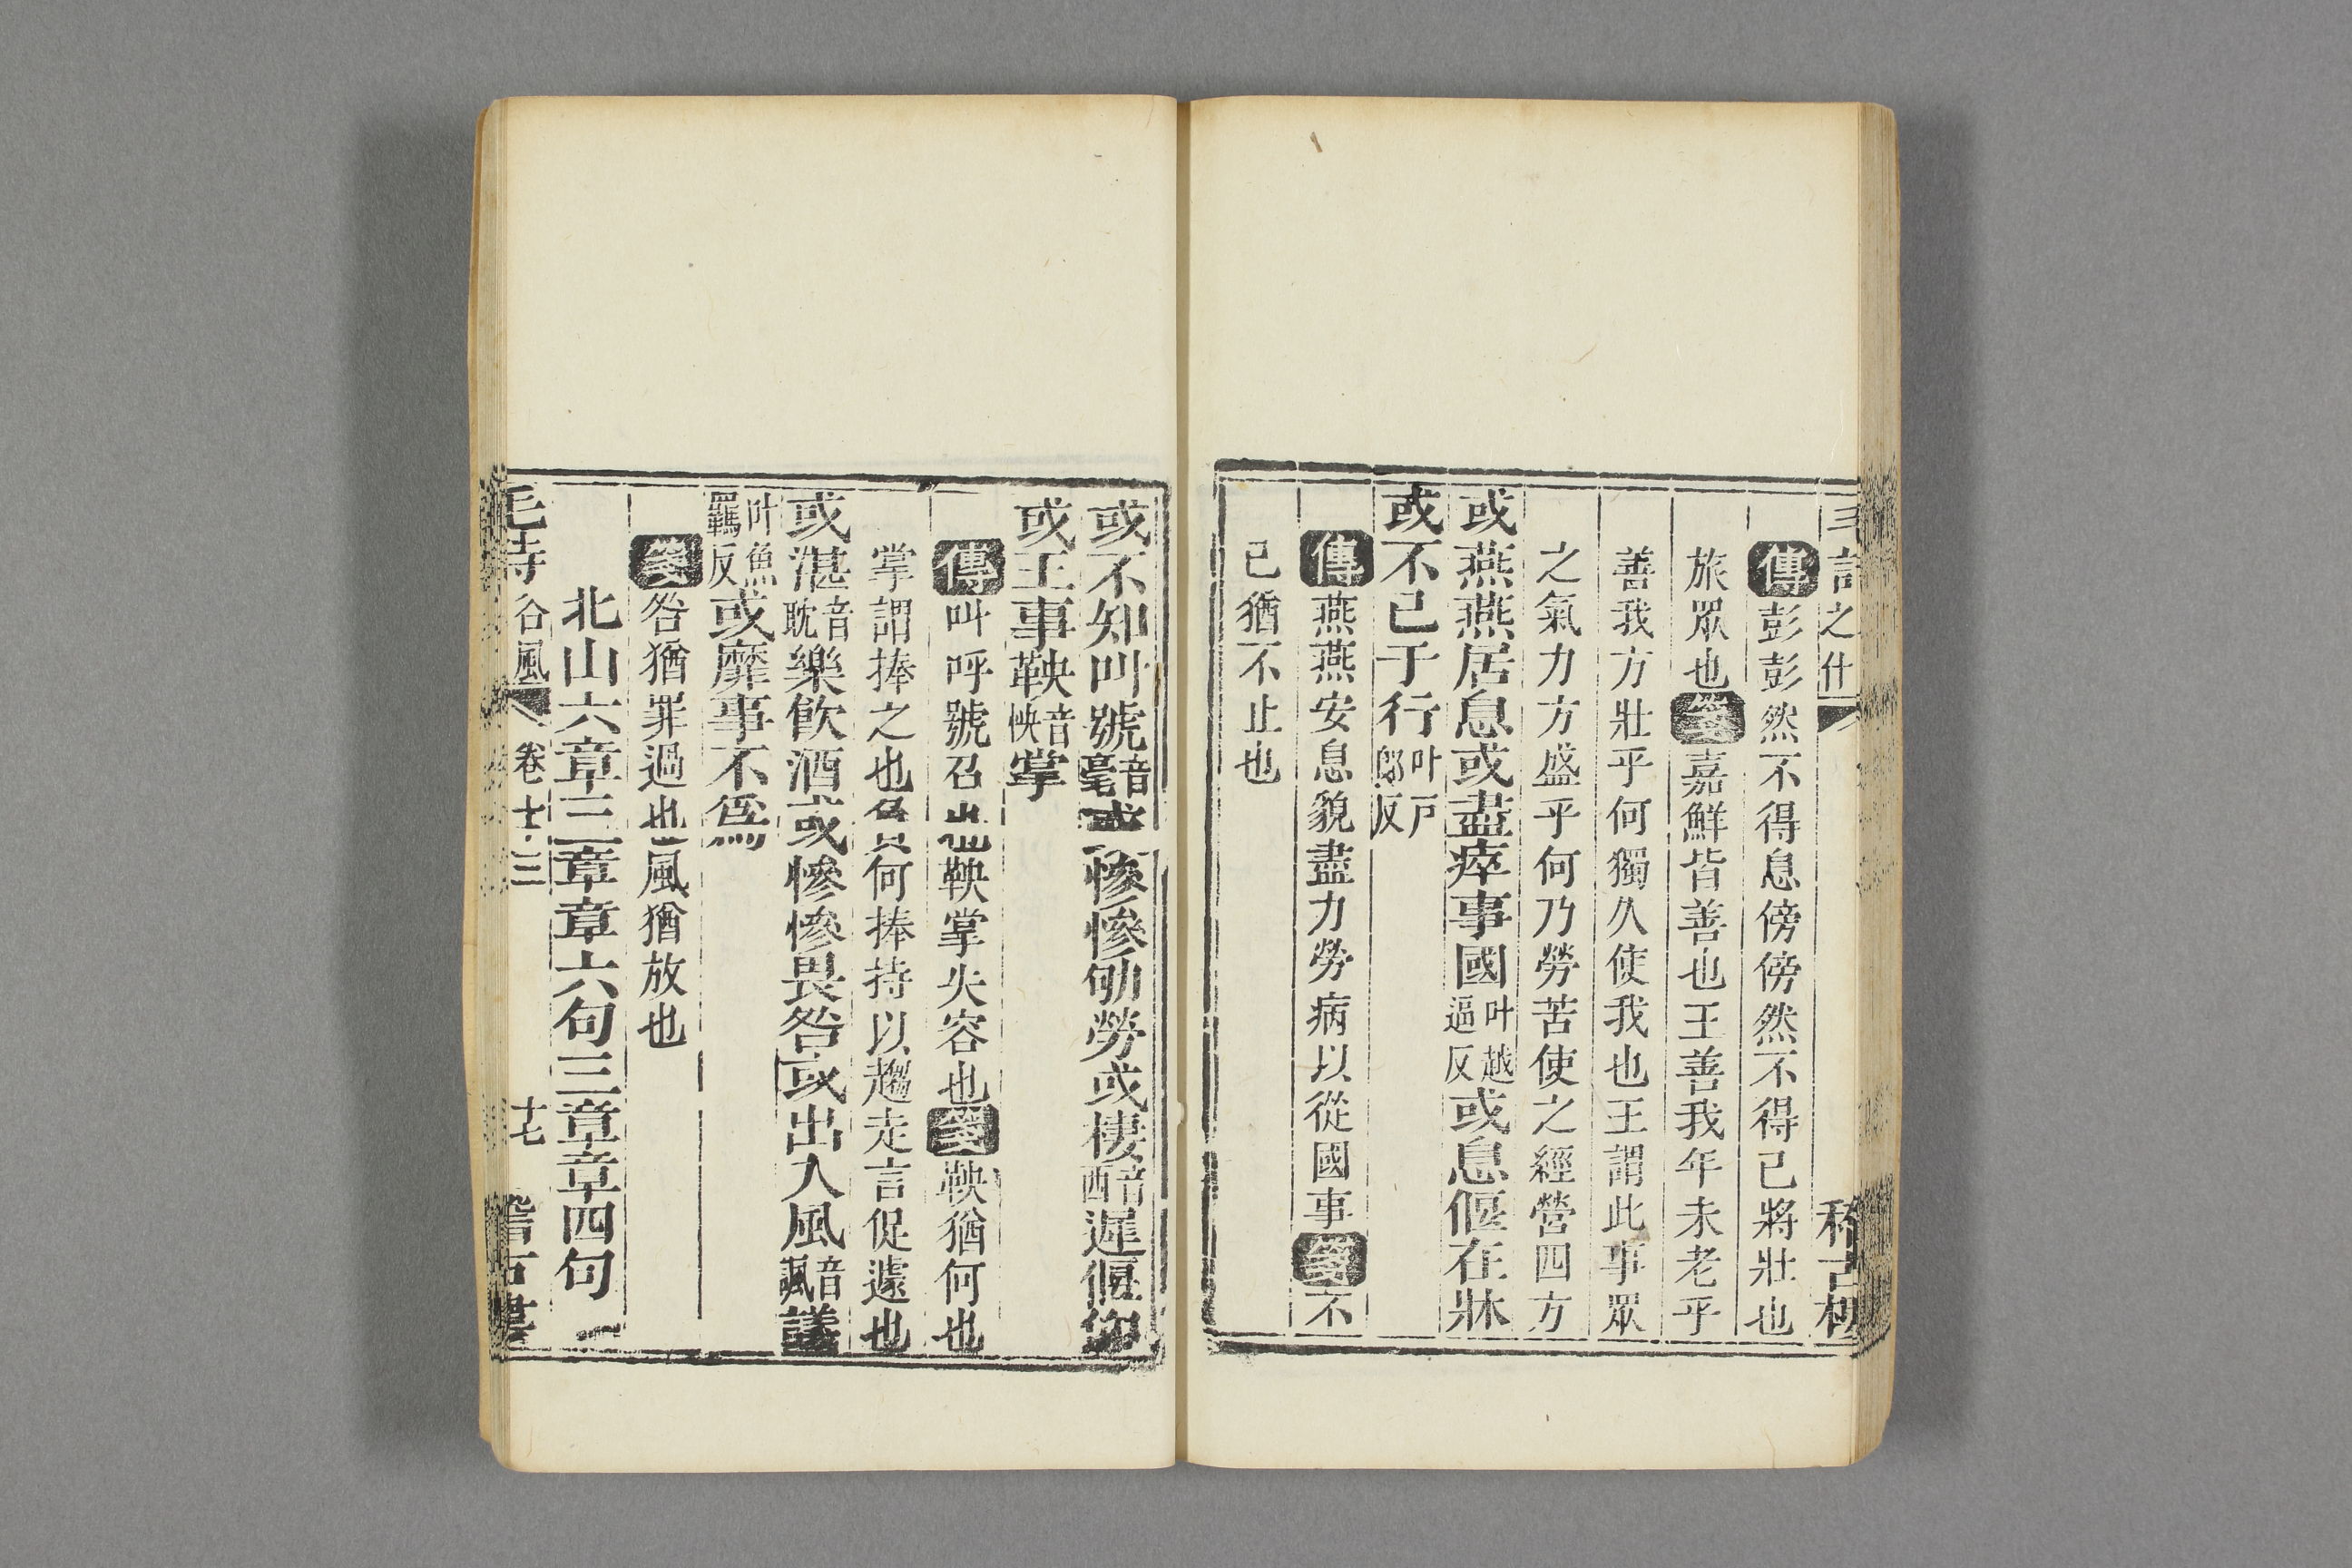 傳彭彭然不得息傍傍然不得已將壯也
旅眾也箋嘉鮮皆善也王善我年未老乎
善我方壯乎何獨久使我也王謂此事眾
之氣力方盛乎何乃勞苦使之經營四方
或燕燕居息或盡瘁事國叶越逼反或息偃在牀
或不已于行叶戸郎反
傳燕燕安息貌盡力勞病以從國事箋不
已猶不止也
或不知叫號音毫或慘慘劬勞或棲音西遲偃仰
或王事鞅音怏掌
傳叫呼號召也鞅掌失容也箋鞅猶何也
掌謂捧之也負何捧持以趨走言促遽也
或湛音耽樂飲酒或慘慘畏咎或出入風音諷議
叶魚羈反或靡事不為
箋咎猶罪過也風猶放也
北山六章三章章六句三章章四句
毛詩 谷風 卷十三 十七